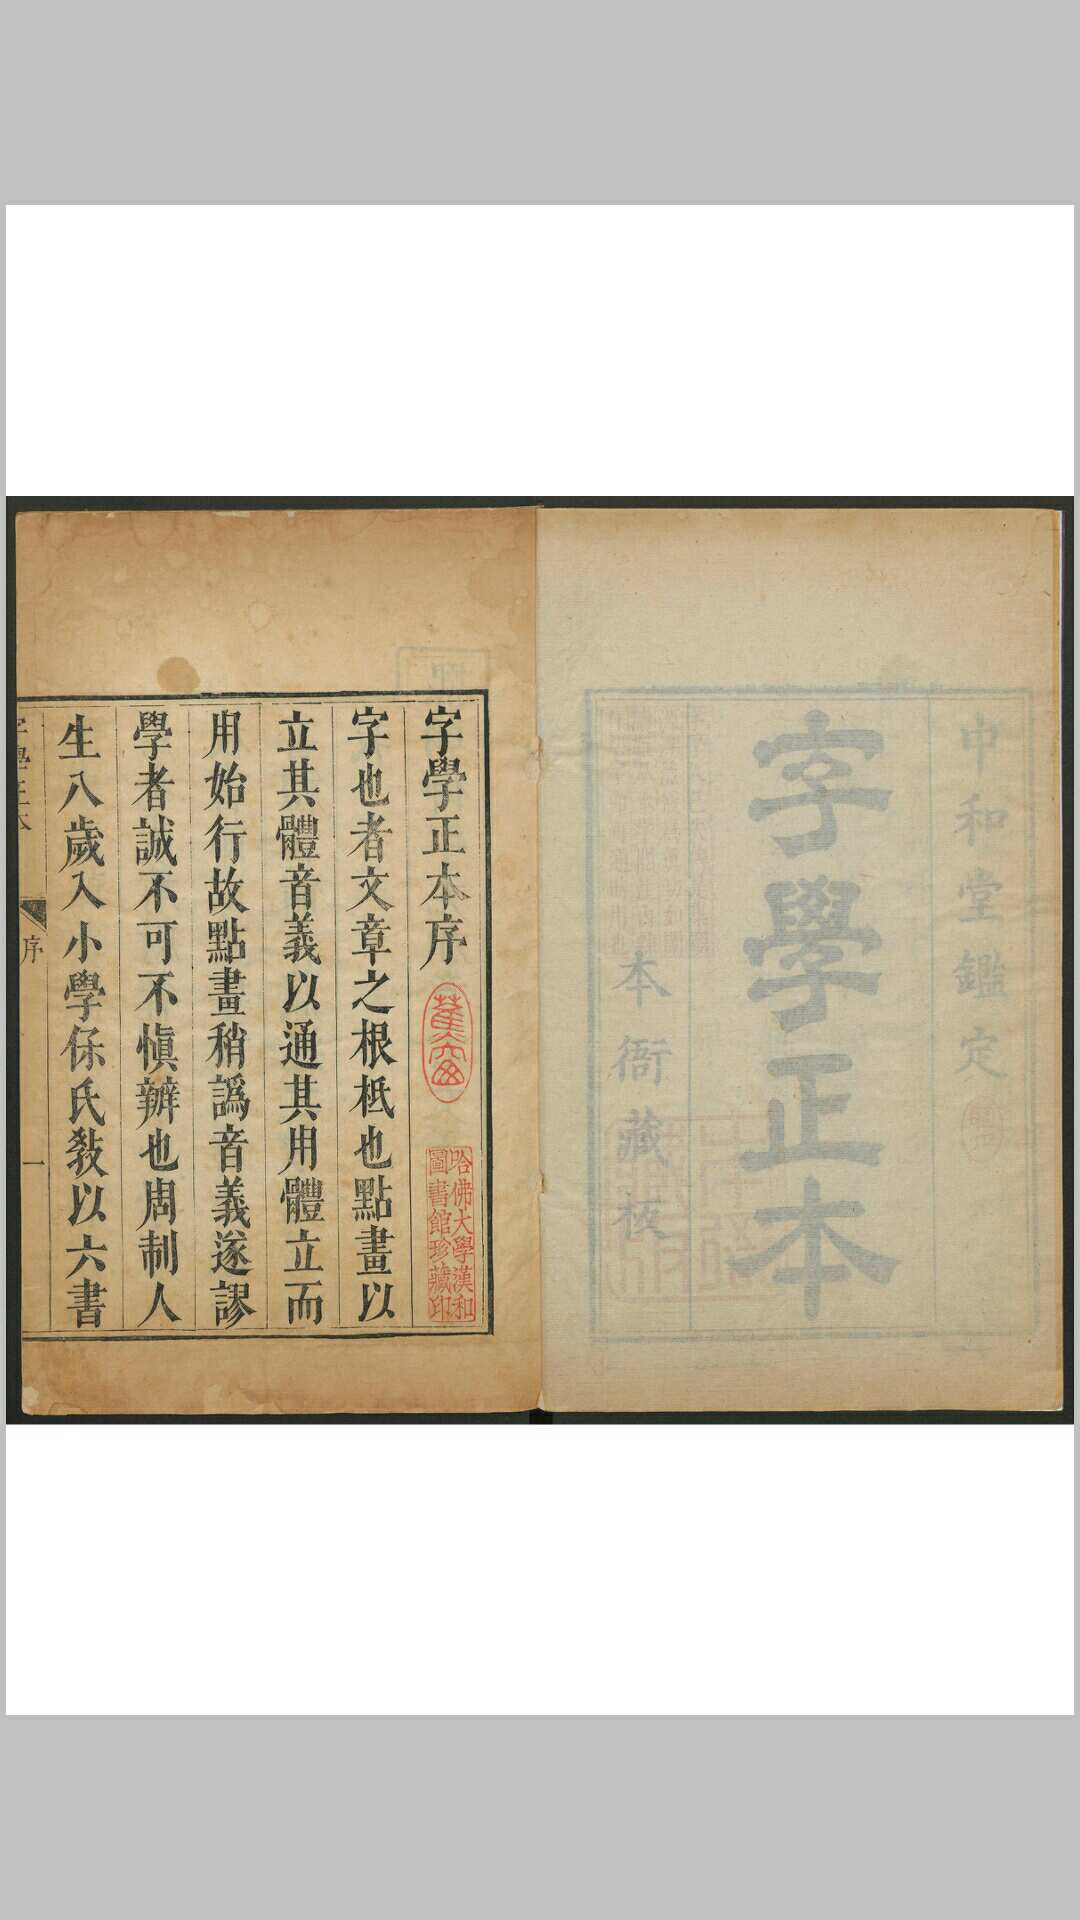 中和堂鑑定
字學正本
本衙藏板
字學正本序
哈佛大學漢和
圖書館珍藏印
字也者文章之根柢也點畫以
立其體音義以通其用體立而
用始行故點畫稍譌音義遂謬
學者誠不可不慎辨也周制人
生八歲入小學保氏敎以六書
序
一